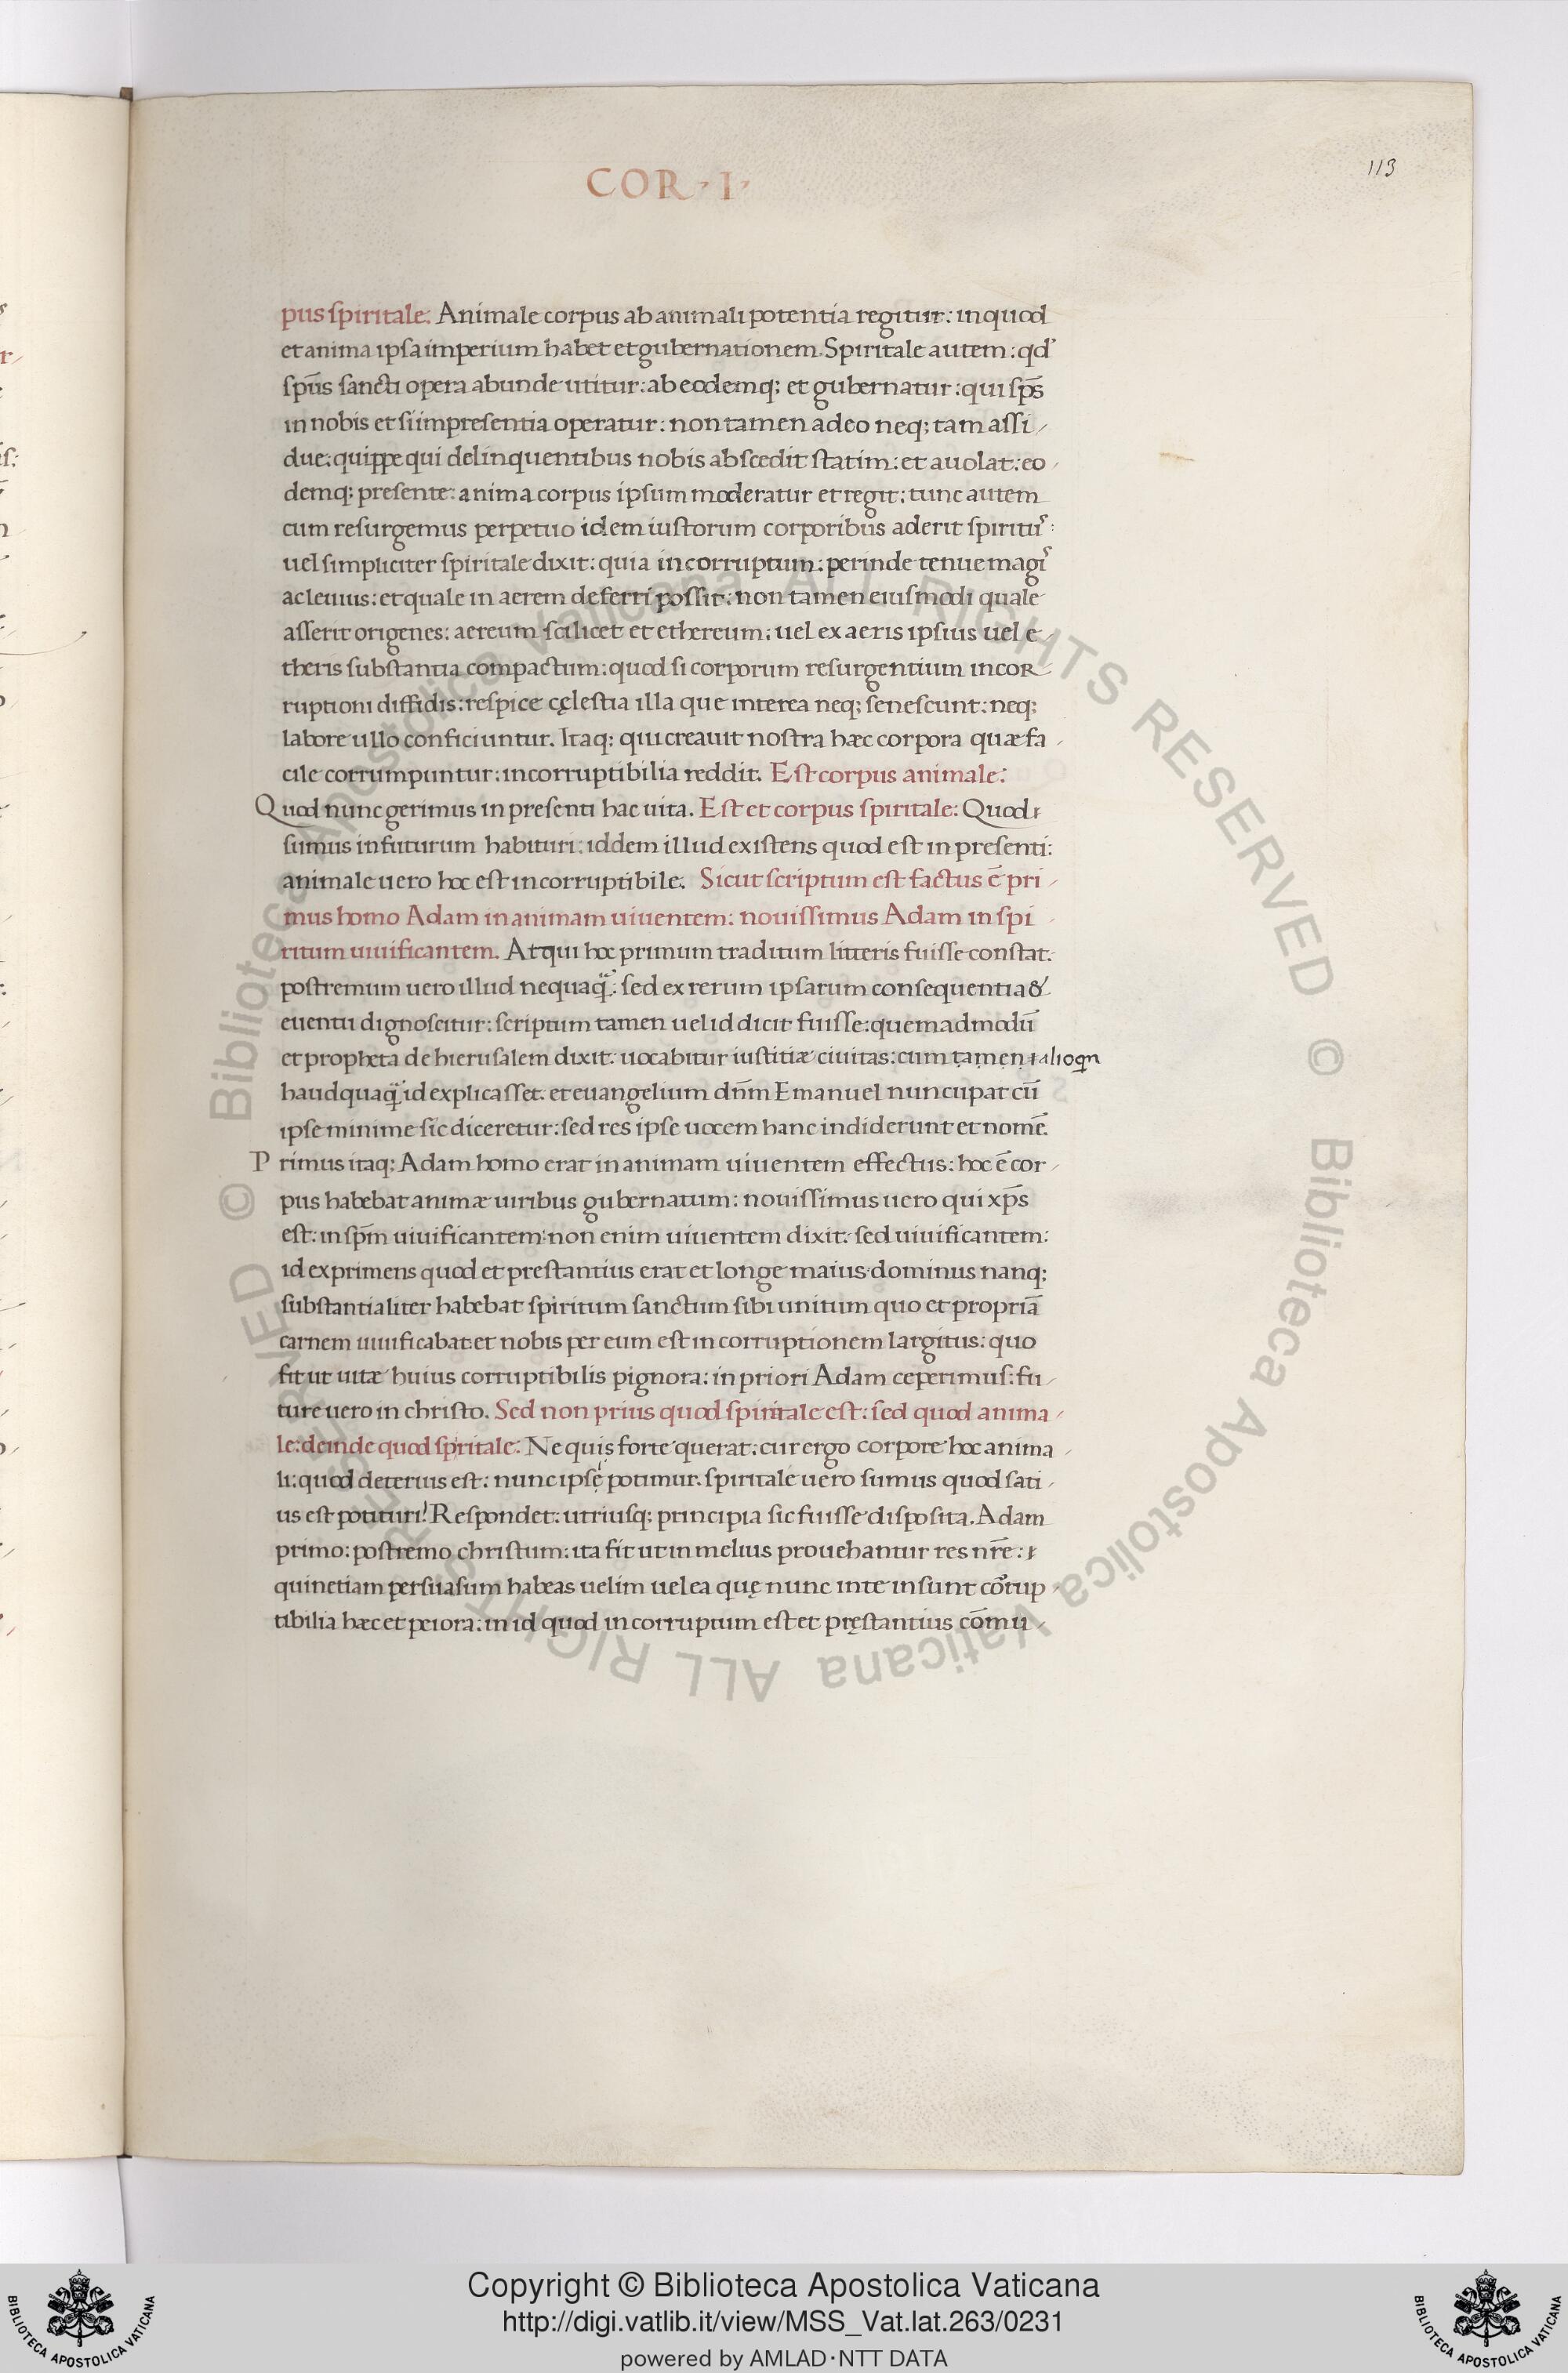 COR · I ·
113
pus spiritale: Animale corpus ab animali potentia regitur: in quod
et anima ipsa imperium habet et gubernationem. Spiritale autem: qd'
sp̄us sancti opera abunde utitur: ab eodemq; et gubernatur: qui sp̄s
in nobis et si impresentia operatur: non tamen adeo neq; tam assi /
due: quippe qui delinquentibus nobis abscedit statim: et avolat: eo /
demq; presente: anima corpus ipsum moderatur et regit: tunc autem
cum resurgemus perpetuo idem iustorum corporibus aderit spiritu᷒:
uel simpliciter spiritale dixit: quia incorruptum: perinde tenue magi᷒
ac leuius: et quale in aerem deferri possit: non tamen eiusmodi quale
asserit origenes: aereum scilicet et ethereum: uel ex aeris ipsius uel e /
theris substantia compactum: quod si corporum resurgentium incor /
ruptioni diffidis: respice cęlestia illa que interea neq; senescunt: neq;
labore ullo conficiuntur. Itaq; qui creauit nostra hæc corpora quæ fa /
cile corrumpuntur: incorruptibilia reddit. Est corpus animale:
Quod nunc gerimus in presenti hac uita. Est et corpus spiritale: Quod
sumus in futurum habituri: iddem illud existens quod est in presenti:
animale uero hoc est incorruptibile. Sicut scriptum est factus ē pri /
mus homo Adam in animam uiuentem: nouissimus Adam in spi /
ritum uiuificantem. Atqui hoc primum traditum litteris fuisse constat.
postremum uero illud nequaq̄: sed ex rerum ipsarum consequentia &
euentu dignoscitur: scriptum tamen uel id dicit fuisse: quemadmodū
et propheta de hierusalem dixit: uocabitur iustitiæ ciuitas: cum ṭạṃẹṇ alioqn
haudquaq̄ id explicasset. et euangelium dn̄m Emanuel nuncupat cū
ipse minime sic diceretur: sed res ipse uocem hanc indiderunt et nomē.
Primus itaq; Adam homo erat in animam uiuentem effectus: hoc ē cor /
pus habebat animæ uiribus gubernatum: nouissimus uero qui xp̄s
est: in sp̄m uiuificantem: non enim uiuentem dixit: sed uiuificantem:
id exprimens quod et prestantius erat et longe maius: dominus nanq;
substantialiter habebat spiritum sanctum sibi unitum quo et propriā
carnem uiuificabat: et nobis per eum est incorruptionem largitus: quo
fit ut uitæ huius corruptibilis pignora: in priori Adam ceperimus: fu /
ture uero in christo. Sed non prius quod spiritale est: sed quod anima /
le: deinde quod spritale: Ne quis forte querat: cur ergo corpore hoc anima /
li: quod deterius est: nunc ipsẹi potimur. spiritale uero sumus quod sati /
us est potituri? Respondet: utriusq; principia sic fuisse disposita. Adam
primo: postremo christum: ita fit ut in melius prouehantur res nr̄e:
quinetiam persuasum habeas uelim uel ea quę nunc inte insunt cōrrup /
tibilia hæc et peiora: in id quod incorruptum est et pręstantius cōmu /
© Biblioteca Apostolica Vaticana ALL RIGHTS RESERVED © Biblioteca Apostolica Vaticana ALL RIGHTS RESERVED
Copyright © Biblioteca Apostolica Vaticana
http://digi.vatlib.it/view/MSS_Vat.lat.263/0231
powered by AMLAD·NTT DATA
BIBLIOTECA APOSTOLICA VATICANA
BIBLIOTECA APOSTOLICA VATICANA